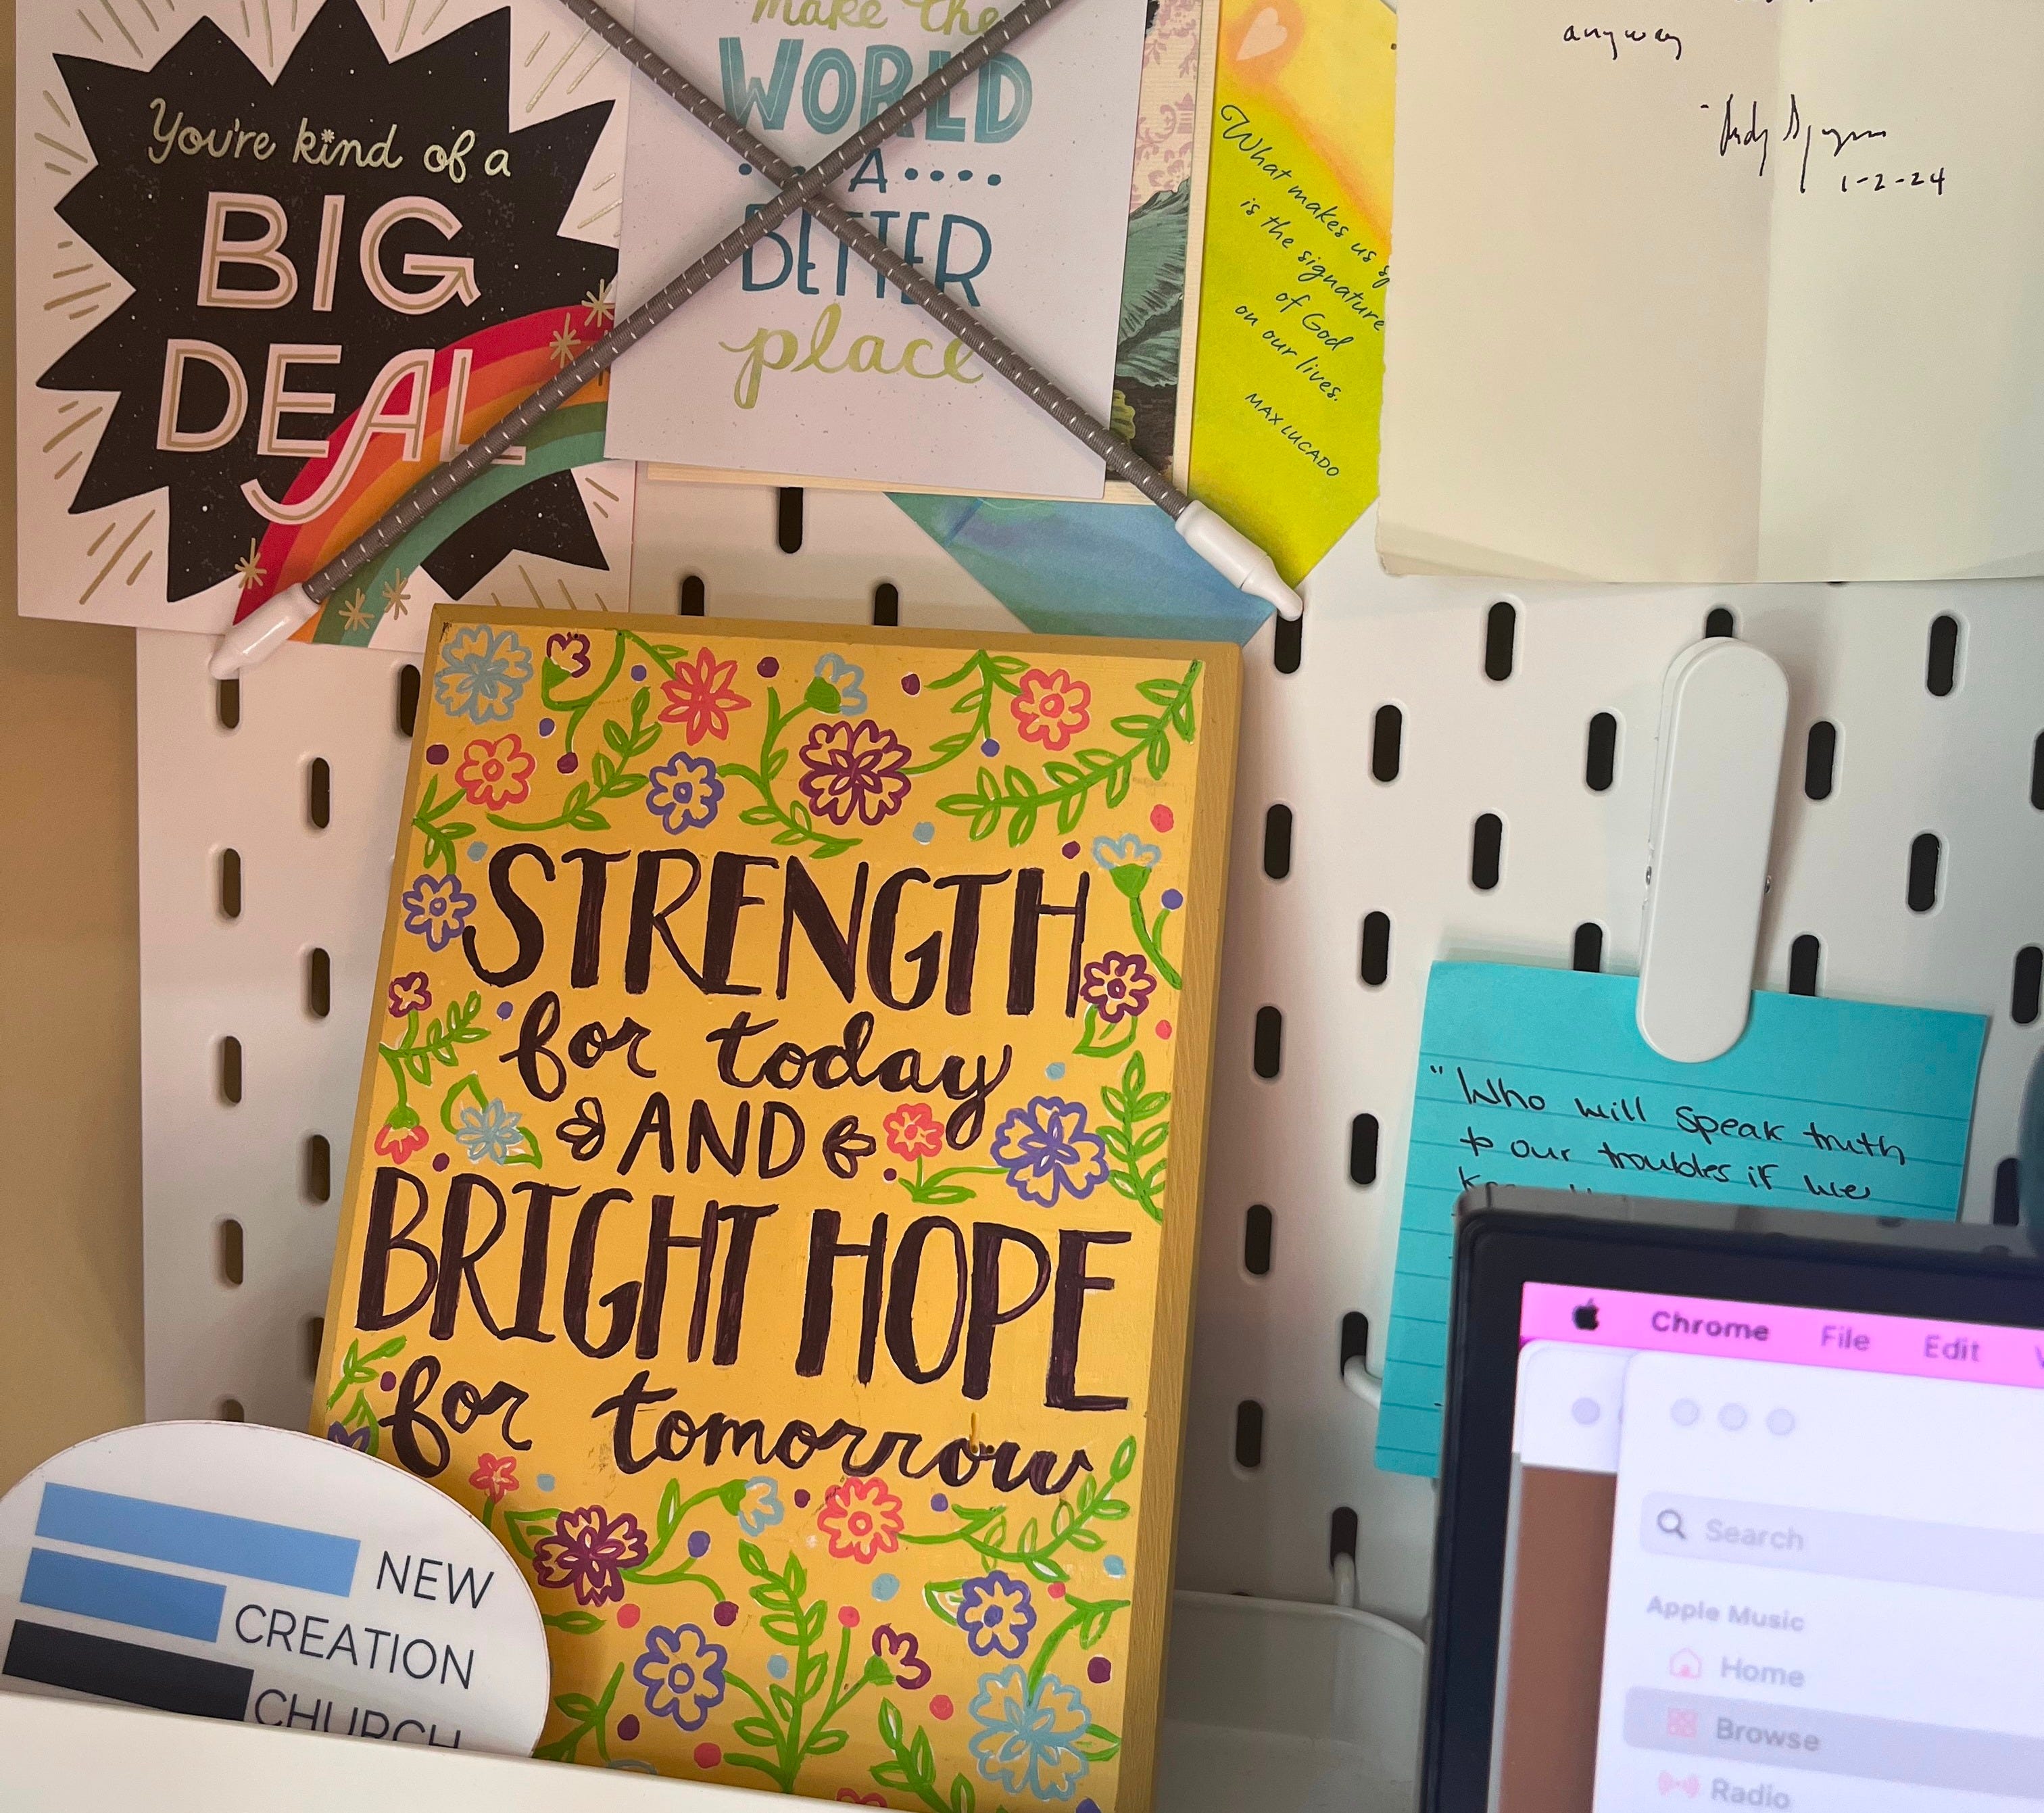 You're kind of a
BIG
DEAL
make the
WORLD
A
BETTER
place
What makes us
is the signature
of God
on our lives.
MAX LUCADO
anyway
1-2-24
STRENGTH
for today
AND
BRIGHT HOPE
for tomorrow
"Who will speak truth
to our troubles if we
NEW
CREATION
CHURCH
Chrome File Edit
Search
Apple Music
Home
Browse
Radio